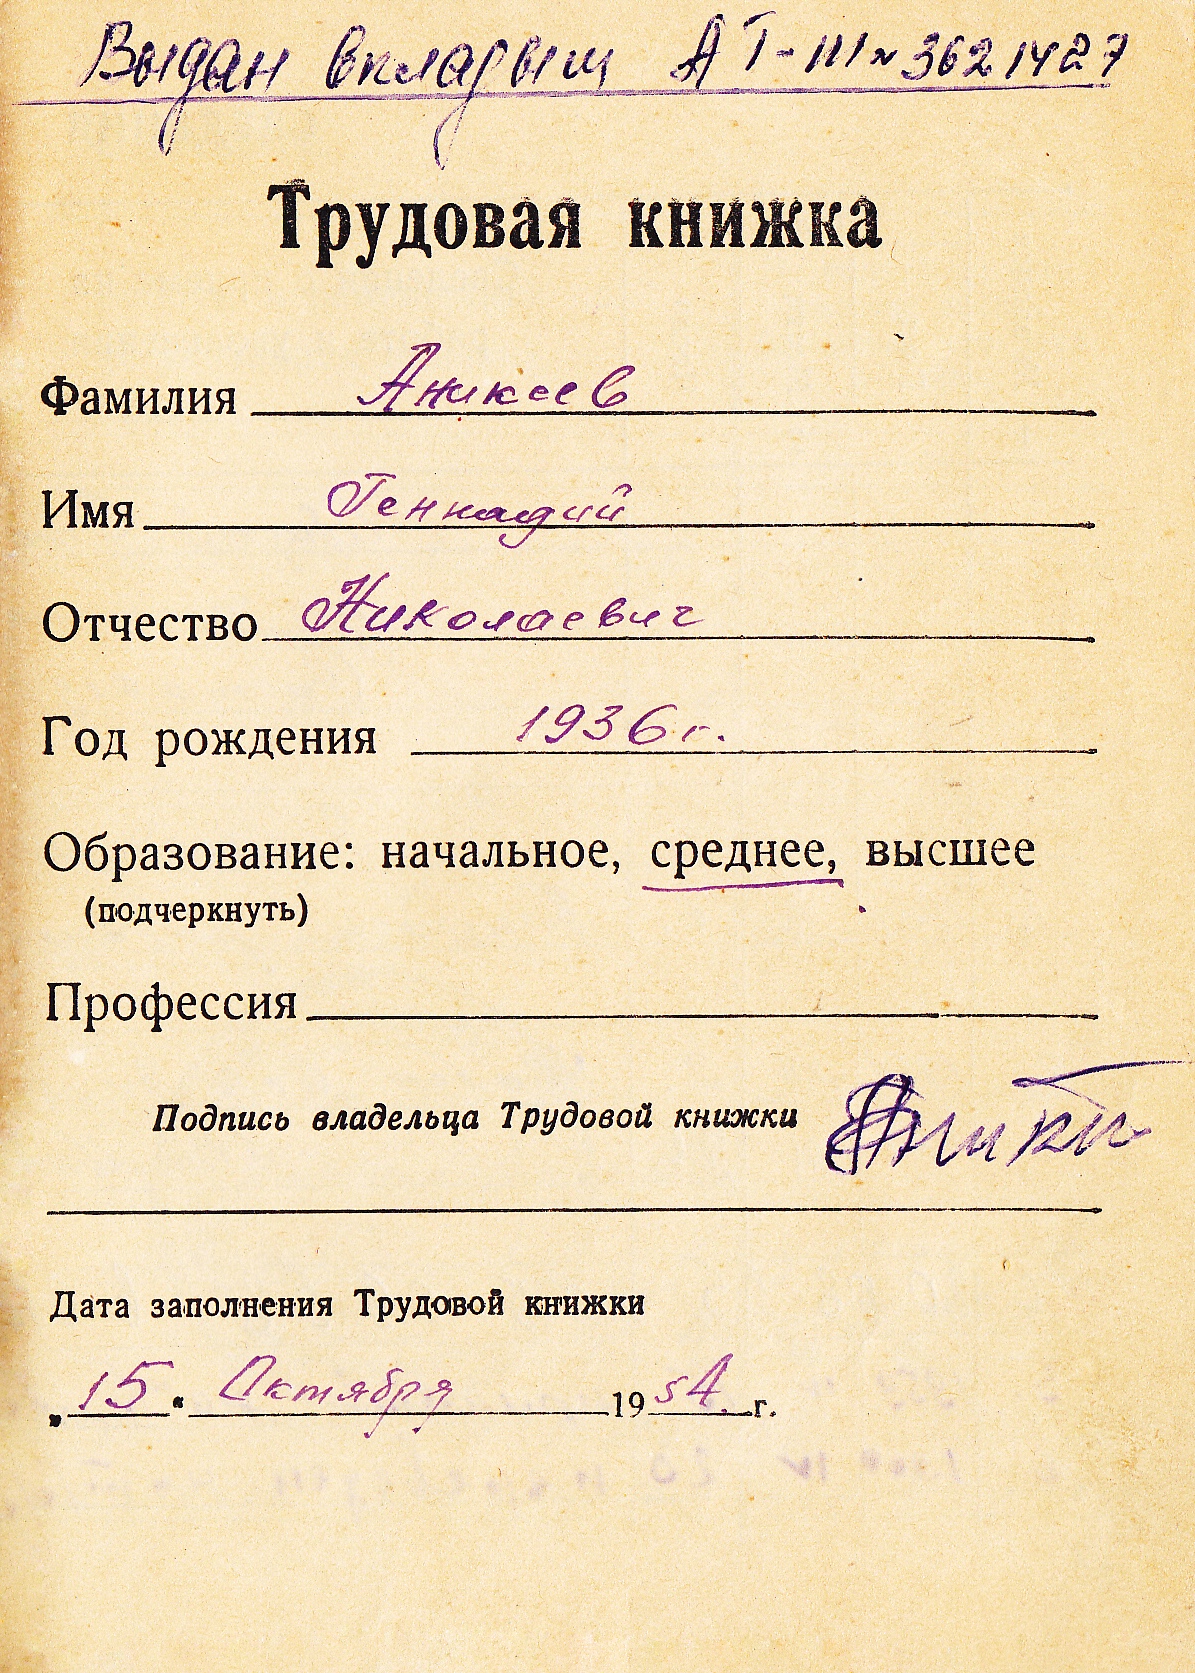 Выдан вкладыш АТ-III № 3621427
Трудовая книжка
Фамилия Аникеев
Имя Геннадий
Отчество Николаевич
Год рождения 1936 г.
Образование: начальное, среднее, высшее
(подчеркнуть)
Профессия
Подпись владельца Трудовой книжки
Дата заполнения Трудовой книжки
„15" Октября 1954 г.